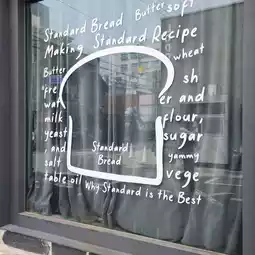 Standard Bread Butter soft
Making Standard Recipe
Butter wheat
fre sh
wat er and
milk flour,
yeast sugar
, and Standard yammy
salt Bread vege
table oil Why Standard is the Best